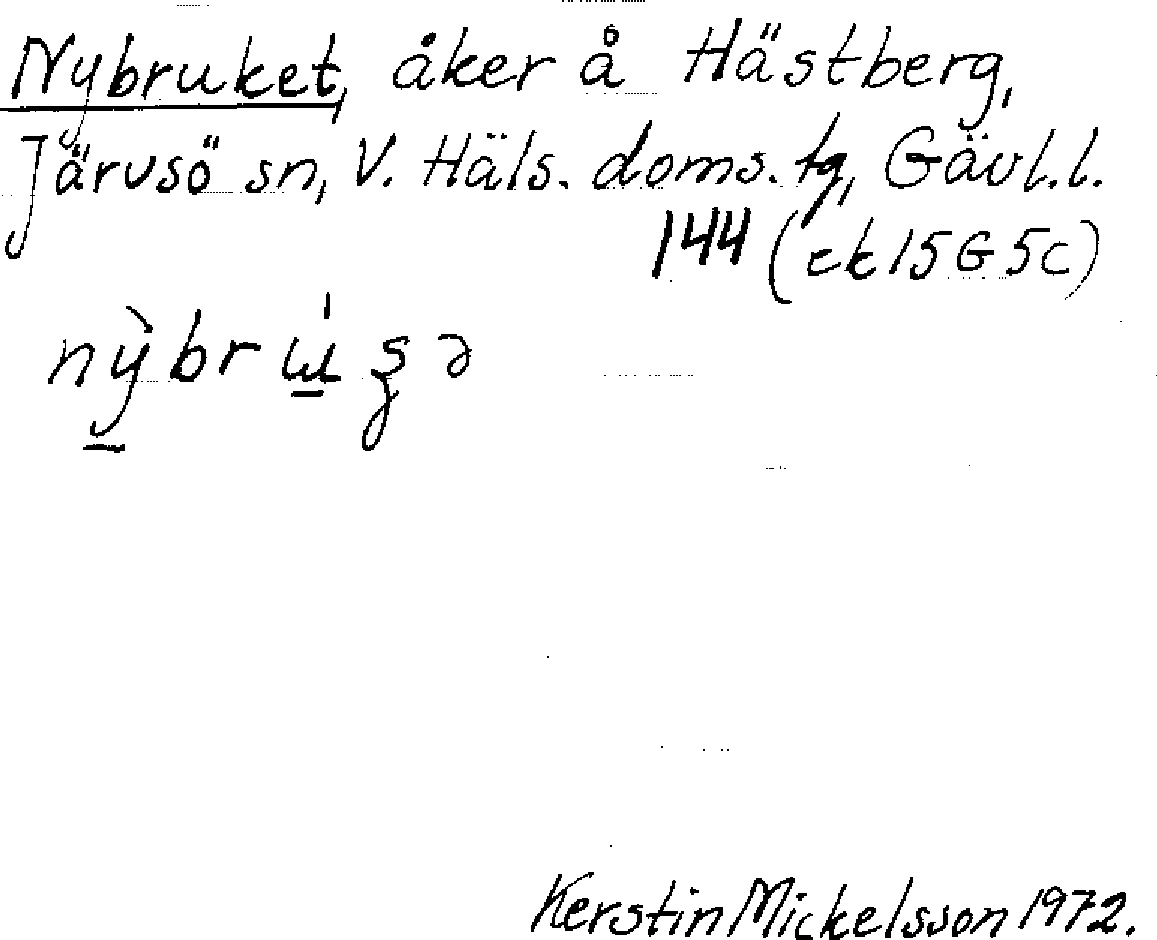 Nybruket, åker å Hästberg,
Järvsö sn, V. Häls. doms. tg, Gävl.l.
144 (ek 15G 5c)
Kerstin Mickelsson 1972.